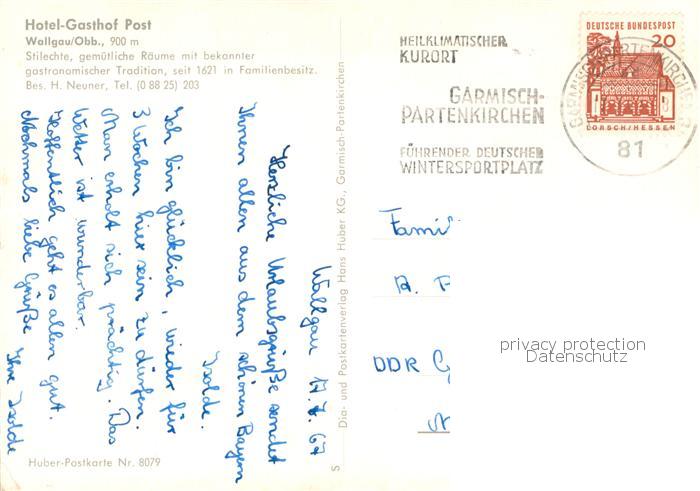 Hotel-Gasthof Post
Wallgau/Obb., 900 m
Stilechte, gemütliche Räume mit bekannter
gastronomischer Tradition, seit 1621 in Familienbesitz.
Bes. H. Neuner, Tel. (0 88 25) 203
Wallgau 17.7.67
Herzliche Urlaubsgrüße sendet
Ihnen allen aus dem schönen Bayern
Isolde.
Ich bin glücklich, wieder für
3 Wochen hier sein zu dürfen.
Man erholt sich prächtig. Das
Wetter ist wunderbar.
Hoffentlich geht es allen gut.
Nochmals liebe Grüße
Ihre Isolde
Huber-Postkarte Nr. 8079
S
Dia- und Postkartenverlag Hans Huber KG., Garmisch-Partenkirchen
HEILKLIMATISCHER
KURORT
GARMISCH-
PARTENKIRCHEN
FÜHRENDER DEUTSCHER
WINTERSPORTPLATZ
DEUTSCHE BUNDESPOST
20
LORSCH/HESSEN
GARMISCH-PARTENKIRCHEN
81
Fami
DDR
privacy protection
Datenschutz